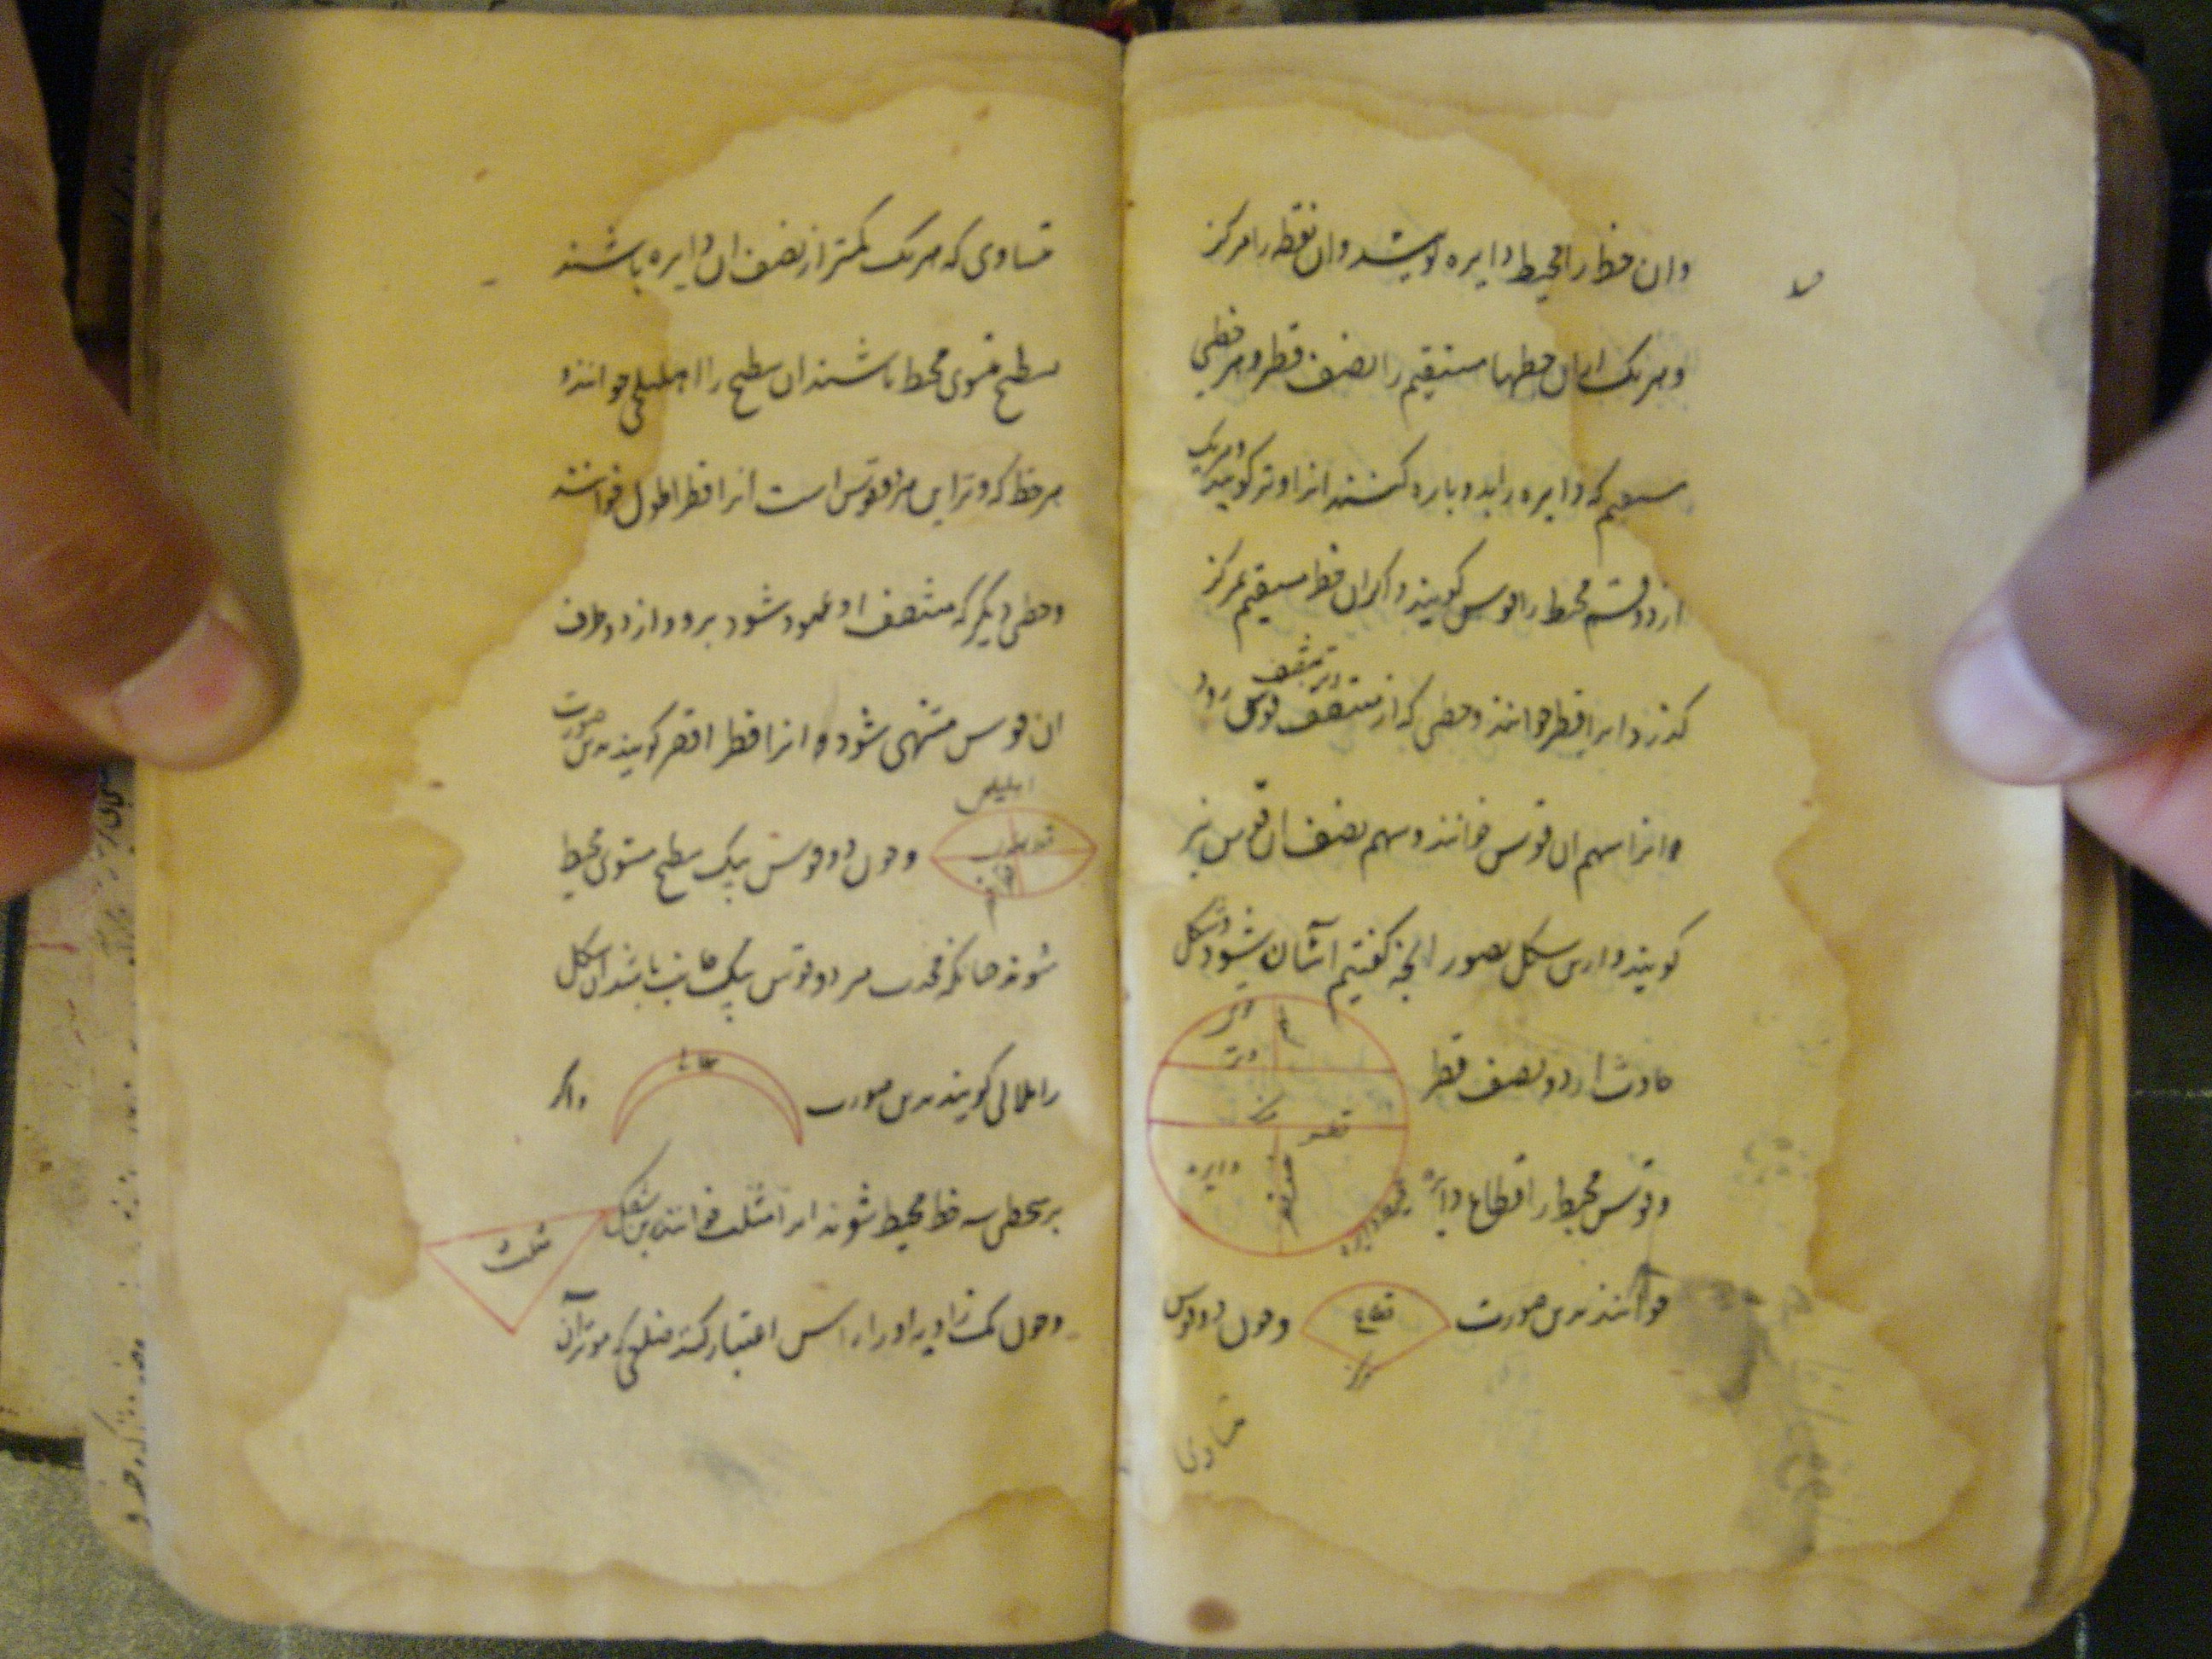 وان خط را محیط دایره کویند وان نقطه را مرکز
و هر یک از ان خطها مستقیم را نصف قطر و هر خطی
مستقیم که دایره را بدو پاره کند انرا وتر کویند و هر یک
از دو قسم محیط را قوس کویند و اکر ان خط مستقیم بمرکز
کذرد انرا قطر خوانند و خطی که از منتصف قوس رود
وتر بمنتصف
و انرا سهم ان قوس خوانند و سهم نصف ان قوس نیز
کویند و ازین شکل تصور انچه کفتیم اسان شود و شکل
حادث از دو نصف قطر
قوس
سهم
وتر
مرکز
قطر
نصف قطر
دایره
محیط دایره
و قوس محیط را قطاع دایره
خوانند بدین صورت
قطاع
مرکز
و چون دو قوس
متساوی
متساوی که هر یک کمتر از نصف ان دایره باشند
سطح مستوی محیط باشند ان سطح را اهلیلجی خوانند و
هر خط که وتر این هر دو قوس است انرا قطر اطول خوانند
و خطی دیکر که منتصف او عمود شود برو و از دو طرف
ان قوس منتهی شود و انرا قطر اقصر کویند بدین صورت
اهلیلجی
و چون دو قوس بیک سطح مستوی محیط
شوند چنانکه محدب هر دو قوس بیک جانب باشند ان شکل
را هلالی کویند بدین صورت
هلالی
و اکر
بر سطحی سه خط محیط شوند انرا مثلث خوانند بدین شکل
مثلث
و چون یک زاویه او را راس اعتبار کنند ضلعی که موتر ان